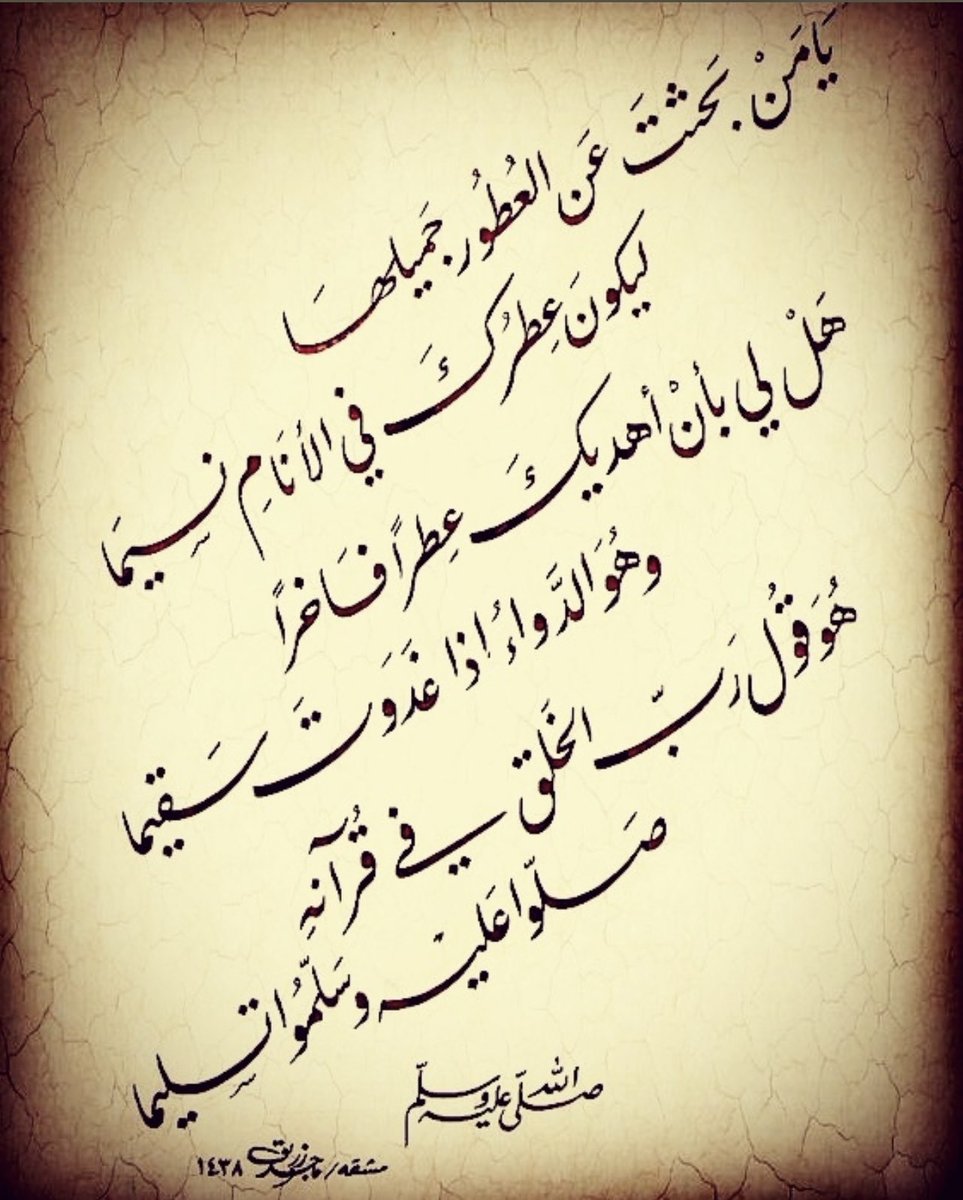 يَا مَنْ بَحَثتَ عَن العُطُور جَميلهَا
ليكونَ عِطرُكَ في الأنَامِ نسِيمَا
هَلْ لي بأنْ أهديكَ عِطراً فَاخراً
وهُوَ الدَّواءُ إذا غَدَوتَ سَقيمَا
هُوَ قَولُ رَبّ الخَلق في قُرآنهِ
صَلّوا عَليْه وسَلّمُوا تسلِيما
صلّى الله عليه وسلّم
مشقه / ماجد زريق ١٤٣٨